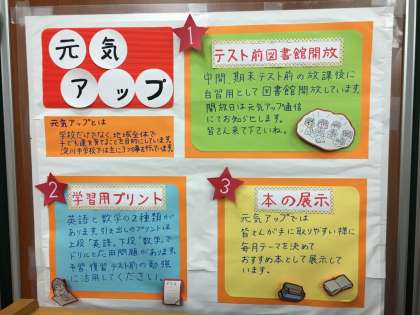 元気
アップ
元気アップとは
学校だけでなく地域全体で
子ども達を育てることを目的にしています。
淀川中学校では主に3つの事を行っています。
1
テスト前図書館開放
中間、期末テスト前の放課後に
自習用として図書館開放しています。
開放日は元気アップ通信
にてお知らせします。
皆さん来て下さいね。
2
学習用プリント
英語と数学の2種類が
あります。引き出しのプリントは
上段「英語」、下段「数学」で
ドリルと応用問題があります。
予習、復習、テスト前の勉強
に活用してください。
3
本の展示
元気アップでは
皆さんが手に取りやすい様に
毎月テーマを決めて
おすすめ本として展示して
います。